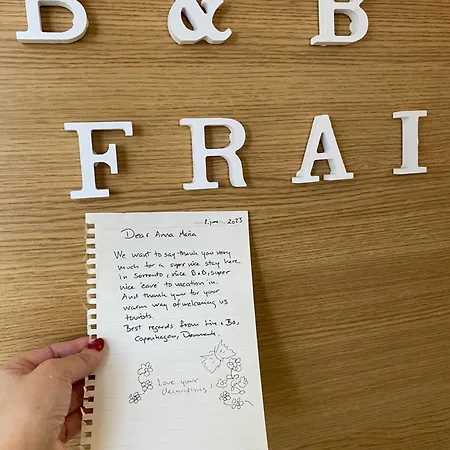 B & B
FRAI
2. june 2023
Dear Anna Maria
We want to say thank you very
much for a super nice stay here
in Sorrento, nice B&B, super
nice 'cave' to vacation in.
And thank your for your
warm way of welcoming us
tourists.
Best regards from Live & Bo,
Copenhagen, Denmark.
Love your
decorations!